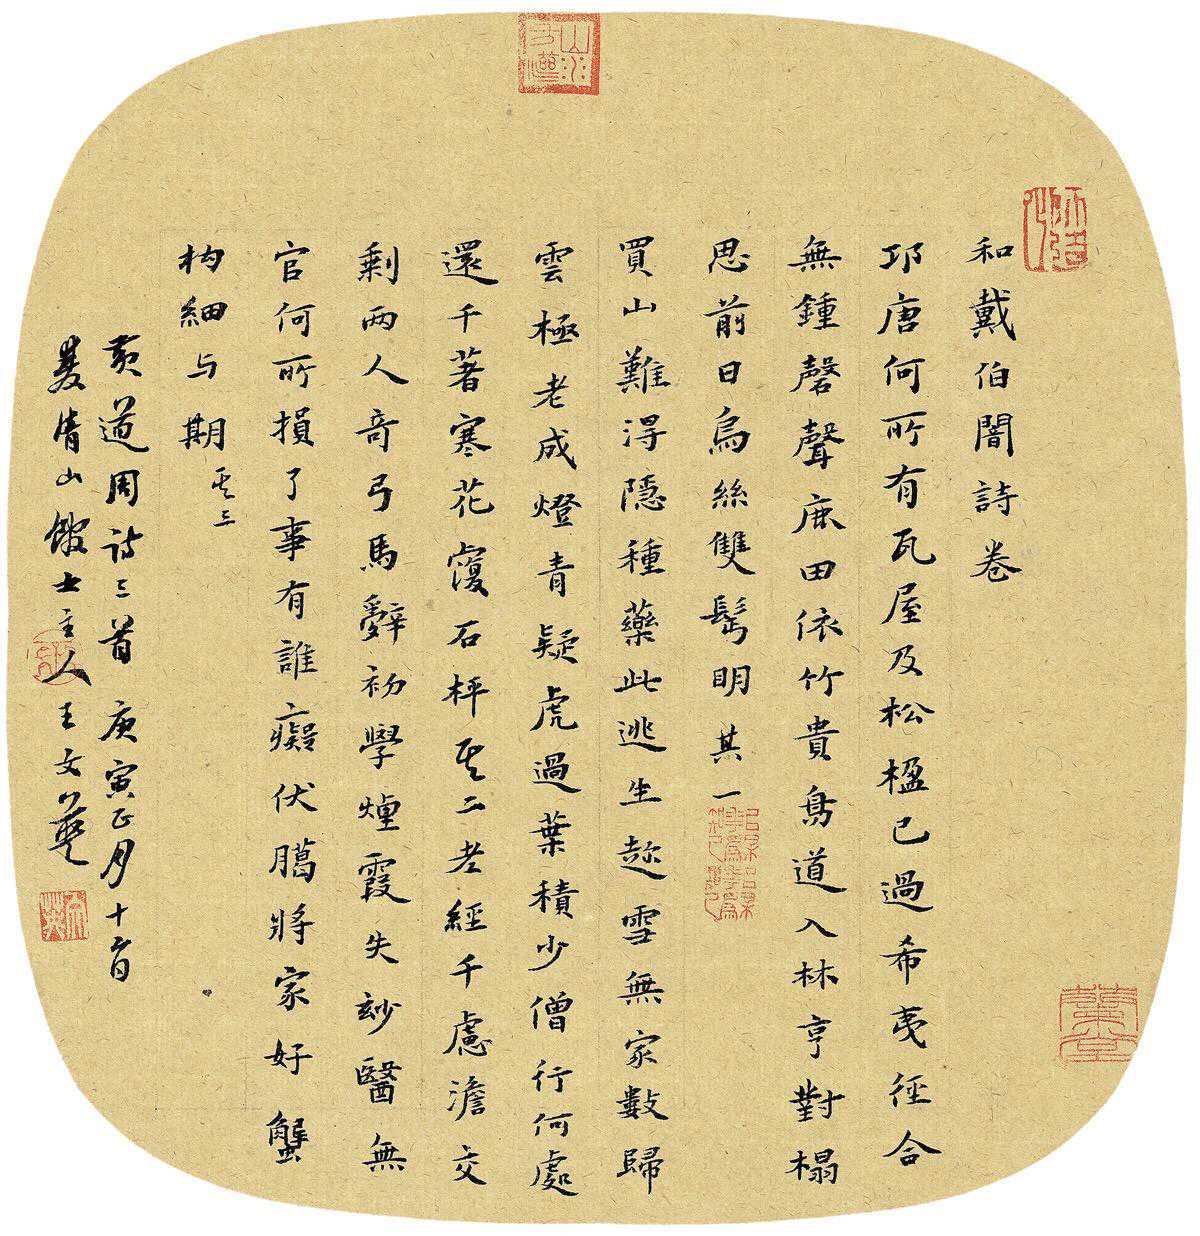 和戴伯闇詩卷
邛唐何所有瓦屋及松楹已過希夷徑合
無鍾磬聲鹿田依竹貴鳥道入林亨對榻
思前日烏絲雙髩明 其一
買山難得隱種藥此逃生趂雪無家數歸
雲極老成燈青疑虎過葉積少僧行何處
還千著寒花覆石枰 其二 老經千慮澹交
剩兩人奇弓馬辭初學煙霞失玅醫無
官何所損了事有誰癡伏臈將家好蟹
构細与期 其三
黃道周詩三首 庚寅正月十六日
山館士主人王文英